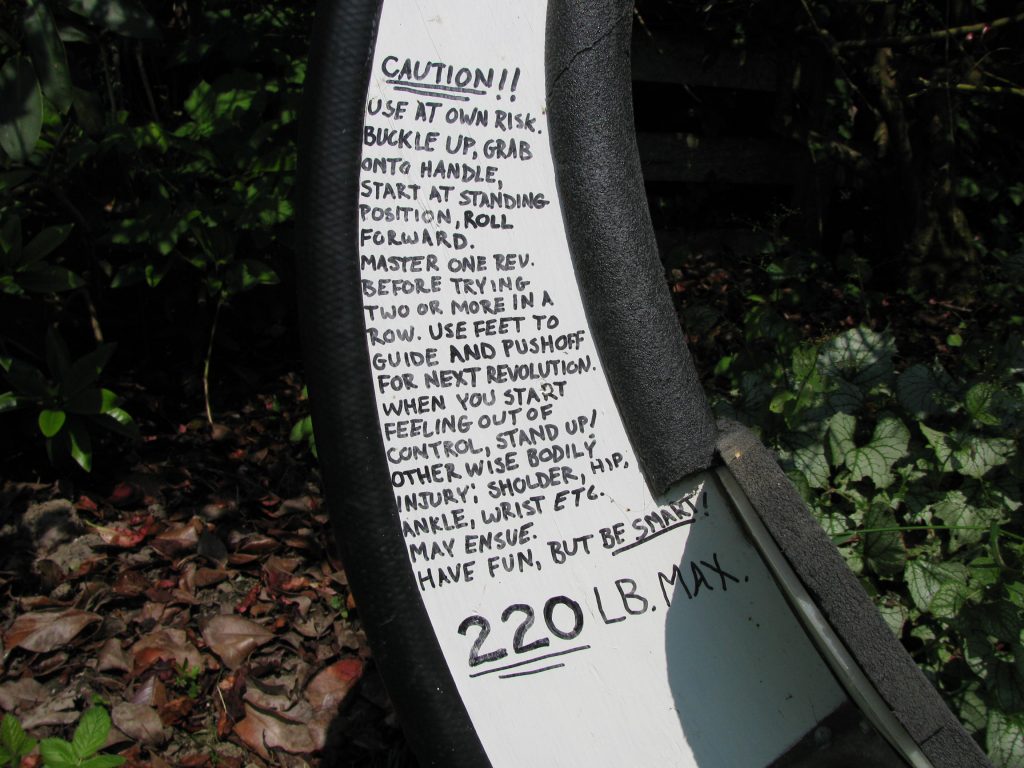 CAUTION!!
USE AT OWN RISK.
BUCKLE UP, GRAB
ONTO HANDLE,
START AT STANDING
POSITION, ROLL
FORWARD.
MASTER ONE REV.
BEFORE TRYING
TWO OR MORE IN A
ROW. USE FEET TO
GUIDE AND PUSHOFF
FOR NEXT REVOLUTION.
WHEN YOU START
FEELING OUT OF
CONTROL, STAND UP!
OTHER WISE BODILY
INJURY: SHOLDER, HIP,
ANKLE, WRIST ETC.
MAY ENSUE.
HAVE FUN, BUT BE SMART!
220 LB. MAX.